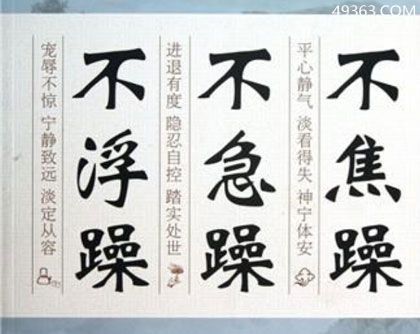 49363.COM
不焦躁
平心静气 淡看得失 神宁体安
不急躁
进退有度 隐忍自控 踏实处世
不浮躁
宠辱不惊 宁静致远 淡定从容